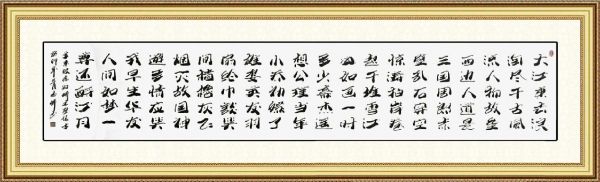 大江東去浪
淘盡千古風
流人物故壘
西边人道是
三國周郎赤
壁亂石穿空
驚濤拍岸卷
起千堆雪江
山如画一時
多少豪杰遥
想公瑾當年
小喬初嫁了
雄姿英发羽
扇綸巾談笑
間檣櫓灰飞
烟灭故國神
遊多情應笑
我早生华发
人間如夢一
尊還酹江月